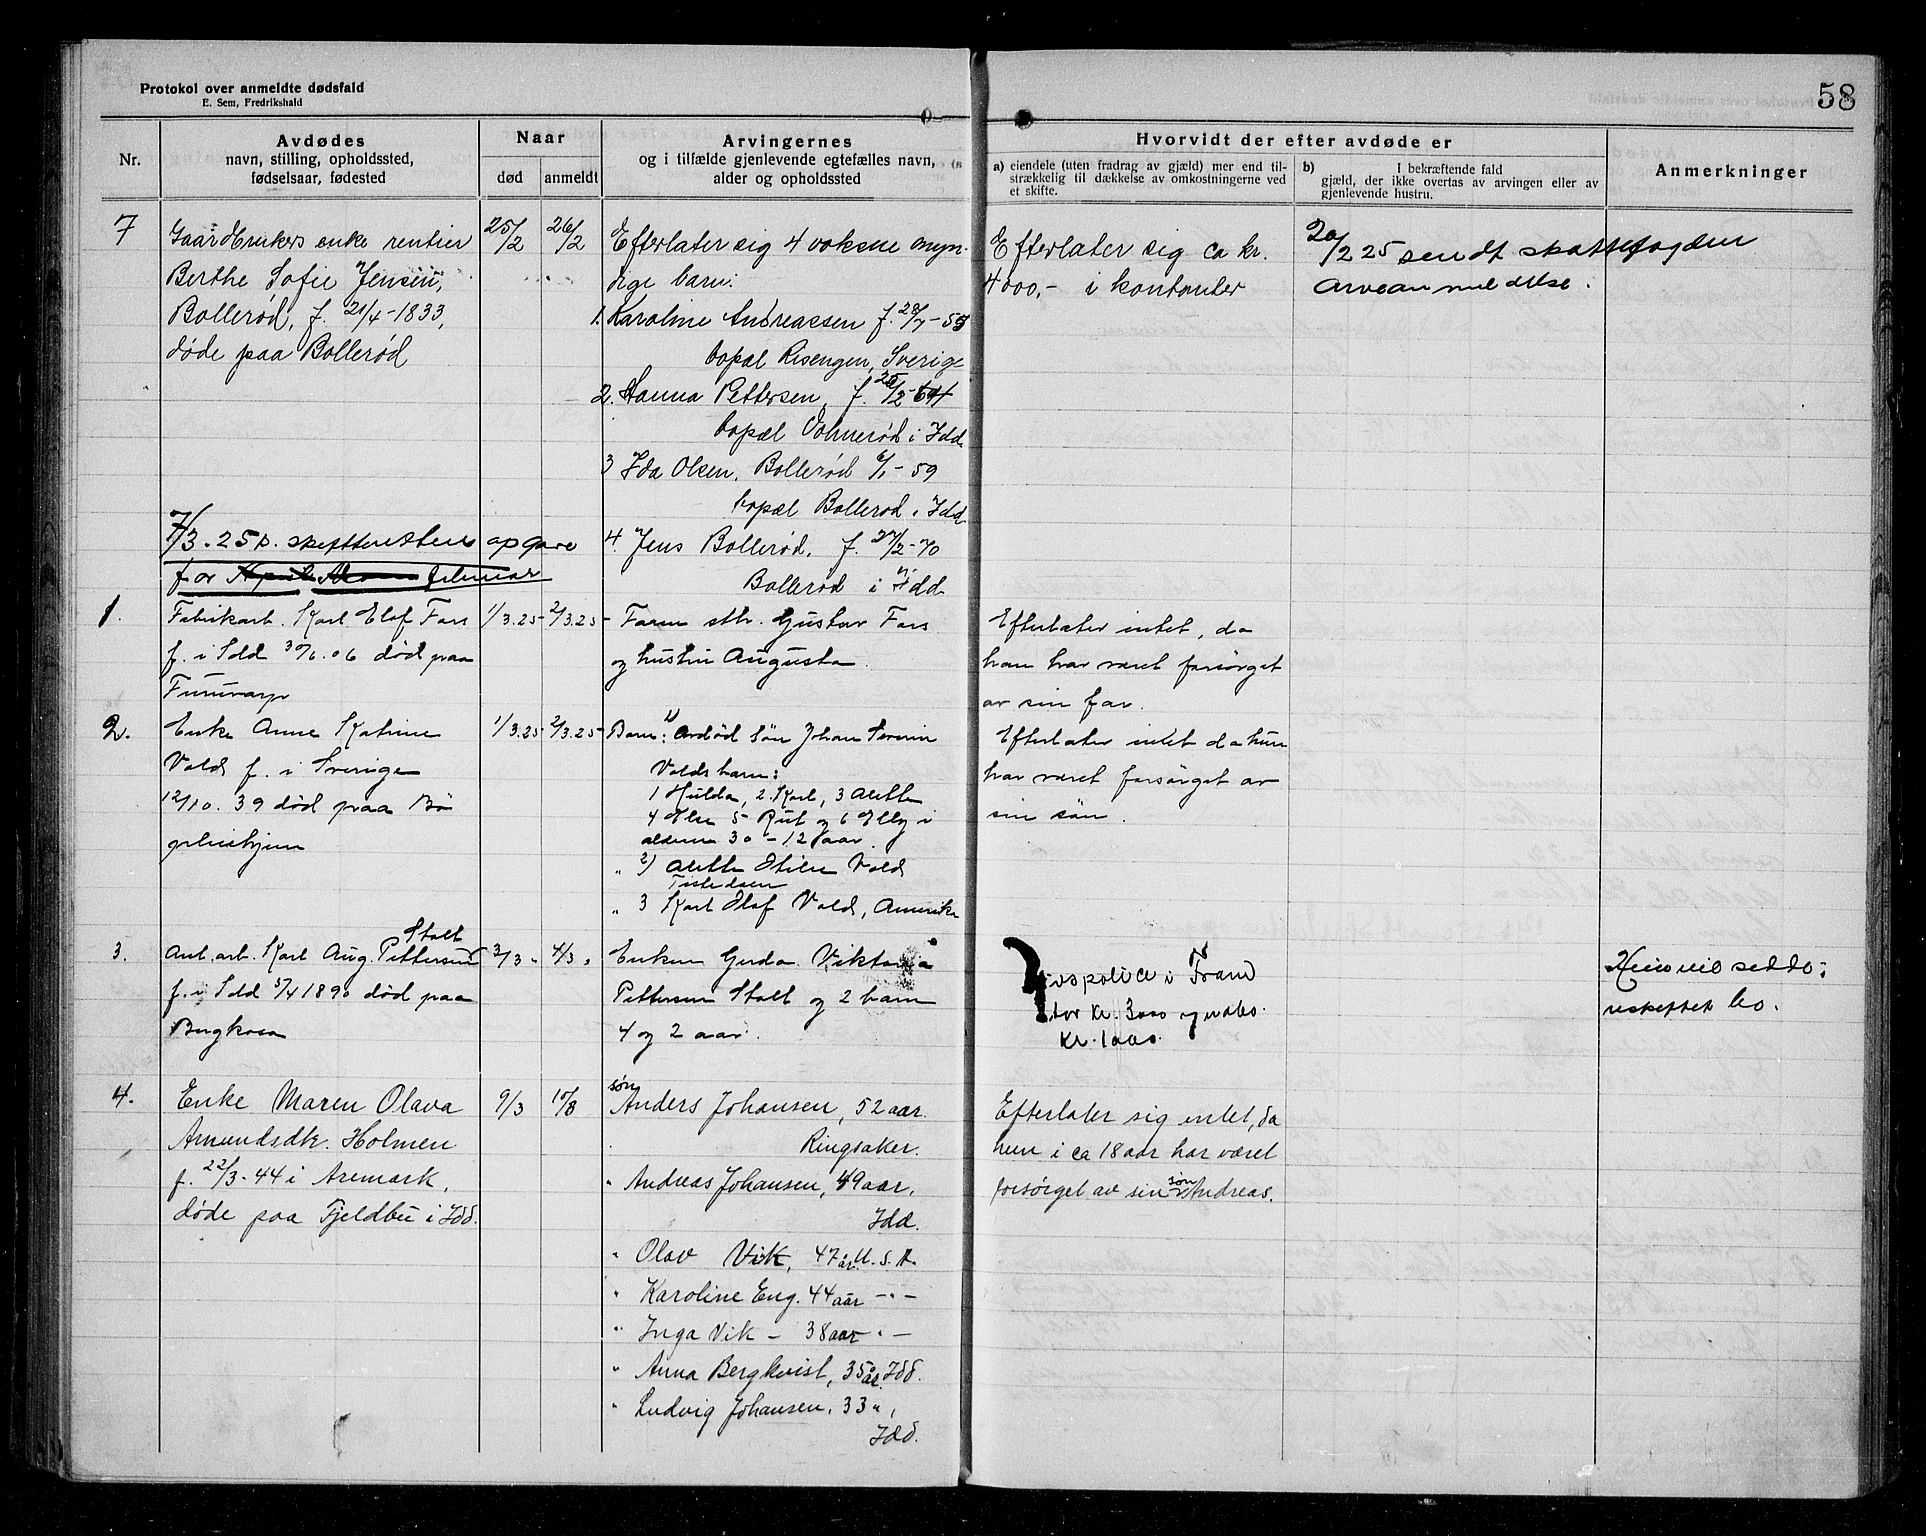 58
Protokol over anmeldte dødsfald
E. Sem, Fredrikshald
Nr.
Avdødes
navn, stilling, opholdssted,
fødselsaar, fødested
Naar
død
anmeldt
Arvingernes
og i tilfælde gjenlevende egtefælles navn,
alder og opholdssted
Hvorvidt der efter avdøde er
a) eiendele (uten fradrag av gjæld) mer end til-
strækkelig til dækkelse av omkostningerne ved
et skifte.
b) I bekræftende fald
gjæld, der ikke overtas av arvingen eller av
gjenlevende hustru.
Anmerkninger
7
Gaardbrukers enke rentier
Berthe Sofie Jensen,
Bollerød, f. 21/4-1833,
døde paa Bollerød
25/2
26/2
Efterlater sig 4 voksne myn-
dige barn:
1. Karoline Andreassen f.
bopæl Risengen, Sverige
2. Hanna Pettersen, f.
bopæl i Idd
3 Ida Olsen, Bollerød 6/1-59
bopæl Bollerød i Idd
4. Jens Bollerød, f. 27/2-70
Bollerød i Idd
Efterlater sig ca kr.
4000,- i kontanter
2 25 sendt skattefogden
arveanmeldelse.
7/3.25 opgave
for februar
1.
Fabrikarb. Karl Elof Fors
f. i Idd 30/6.06 død paa
1/3.25
2/3.25
Faren Gustav Fors
og hustru Augusta
Efterlater intet, da
han har været forsørget
av sin far.
2.
Enke Anne Katrine
Vold f. i Sverige
12/10.39 død paa Bö
1/3.25
2/3.25
Barn: 1) avdød søn Johan
Volds barn:
1 Hulda, 2. Karl, 3
4 Else 5 Rut og 6 Elly i
alderen 30-12 aar.
" 2) Vold
Tistedalen
" 3 Karl Olof Vold, Amerika
Efterlater intet da hun
har været forsørget av
sin søn.
3.
Stolt
arb. Karl Aug. Pettersen
f. i Idd 5/4 1890 død paa
3/3 "
4/3 "
Enken Gerda Viktoria
Pettersen Stolt og 2 barn
4 og 2 aar.
Livspolice i Fram
stor kr. 3000
kr. 1000.
uskiftet bo.
4.
Enke Maren Olava
Amundsdtr. Holmen
f. 22/3-44 i Aremark,
døde paa Fjeldbu i Idd.
9/3
10/3
søn
Anders Johansen, 52 aar.
Ringsaker.
" Andreas Johansen, 49 aar,
Idd.
" Olav Vik, 47 år U.S.A.
" Karoline Eng. 44 aar -"-
" Inga Vik - 38 aar "-
" Anna Bergkvist, 35 år. Idd.
" Ludvig Johansen, 33 ",
Idd.
Efterlater sig intet, da
hun i ca 18 aar har været
forsørget av sin søn Andreas.